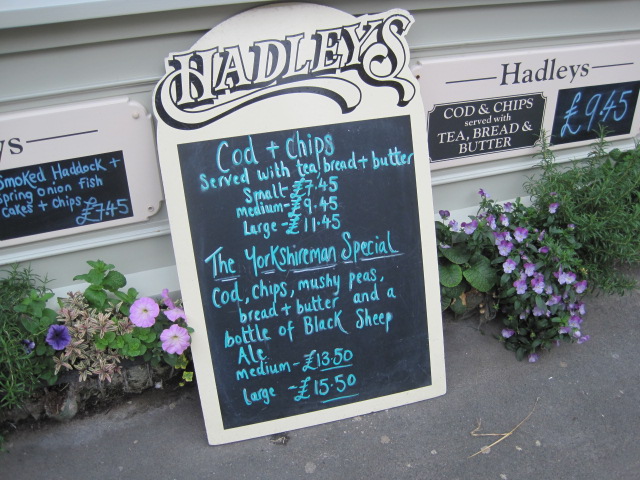 HADLEYS
Cod + chips
Served with tea, bread + butter
Small- £7.45
medium- £9.45
Large - £11.45
The Yorkshireman Special
Cod, chips, mushy peas,
bread + butter and a
bottle of Black Sheep
Ale
medium - £13.50
large - £15.50
ys
Smoked Haddock +
spring onion fish
cakes + chips £7.45
Hadleys
COD & CHIPS
served with
TEA, BREAD &
BUTTER
£9.45